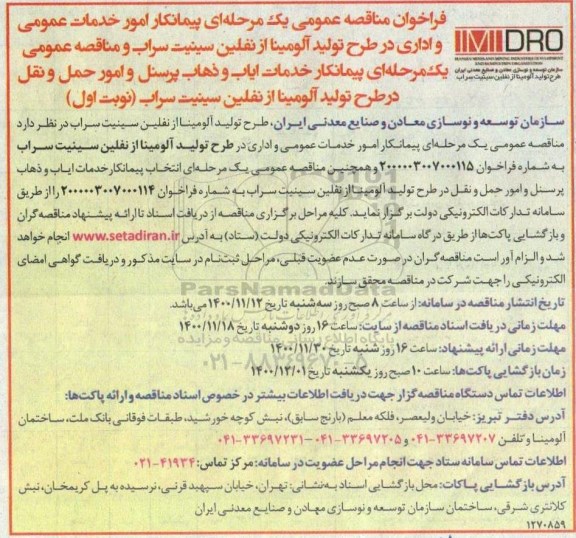 فراخوان مناقصه عمومی یک مرحله‌ای پیمانکار امور خدمات عمومی
و اداری در طرح تولید آلومینا از نفلین سینیت سراب و مناقصه عمومی
یک‌مرحله‌ای پیمانکار خدمات ایاب و ذهاب پرسنل و امور حمل و نقل
در طرح تولید آلومینا از نفلین سینیت سراب (نوبت اول)
IMIDRO
سازمان توسعه و نوسازی معادن و صنایع معدنی ایران
طرح تولید آلومینا از نفلین سینیت سراب
سازمان توسعه و نوسازی معادن و صنایع معدنی ایران، طرح تولید آلومینا از نفلین سینیت سراب در نظر دارد
مناقصه عمومی یک مرحله‌ای پیمانکار امور خدمات عمومی و اداری در طرح تولید آلومینا از نفلین سینیت سراب
به شماره فراخوان ۲۰۰۰۰۰۳۰۰۷۰۰۰۱۱۵ و همچنین مناقصه عمومی یک مرحله‌ای انتخاب پیمانکار خدمات ایاب و ذهاب
پرسنل و امور حمل و نقل در طرح تولید آلومینا از نفلین سینیت سراب به شماره فراخوان ۲۰۰۰۰۰۳۰۰۷۰۰۰۱۱۴ را از طریق
سامانه تدارکات الکترونیکی دولت برگزار نماید. کلیه مراحل برگزاری مناقصه از دریافت اسناد تا ارائه پیشنهاد مناقصه‌گران
و بازگشایی پاکت‌ها از طریق درگاه سامانه تدارکات الکترونیکی دولت (ستاد) به آدرس www.setadiran.ir انجام خواهد
شد و الزام آور است مناقصه‌گران در صورت عدم عضویت قبلی، مراحل ثبت‌نام در سایت مذکور و دریافت گواهی امضای
الکترونیکی را جهت شرکت در مناقصه محقق سازند.
تاریخ انتشار مناقصه در سامانه: از ساعت ۸ صبح روز سه‌شنبه تاریخ ۱۴۰۰/۱۱/۱۲ می‌باشد.
مهلت زمانی دریافت اسناد مناقصه از سایت: ساعت ۱۶ روز دوشنبه تاریخ ۱۴۰۰/۱۱/۱۸
مهلت زمانی ارائه پیشنهاد: ساعت ۱۶ روز شنبه تاریخ ۱۴۰۰/۱۱/۳۰
زمان بازگشایی پاکت‌ها: ساعت ۱۰ صبح روز یکشنبه تاریخ ۱۴۰۰/۱۲/۰۱
اطلاعات تماس دستگاه مناقصه گزار جهت دریافت اطلاعات بیشتر در خصوص اسناد مناقصه و ارائه پاکت‌ها:
آدرس دفتر تبریز: خیابان ولیعصر، فلکه معلم (بارنج سابق)، نبش کوچه خورشید، طبقات فوقانی بانک ملت، ساختمان
آلومینا و تلفن ۳۳۶۹۷۲۰۷-۰۴۱ و ۳۳۶۹۷۲۰۵-۰۴۱ - ۳۳۶۹۷۲۳۱-۰۴۱
اطلاعات تماس سامانه ستاد جهت انجام مراحل عضویت در سامانه: مرکز تماس: ۴۱۹۳۴-۰۲۱
آدرس بازگشایی پاکات: محل بازگشایی اسناد به نشانی: تهران، خیابان سپهبد قرنی، نرسیده به پل کریمخان، نبش
کلانتری شرقی، ساختمان سازمان توسعه و نوسازی معادن و صنایع معدنی ایران
۱۲۷۰۸۵۹
ParsNamadData
پایگاه اطلاع رسانی مناقصه و مزایده
۰۲۱-۸۸۳۴۹۶۷۰-۵